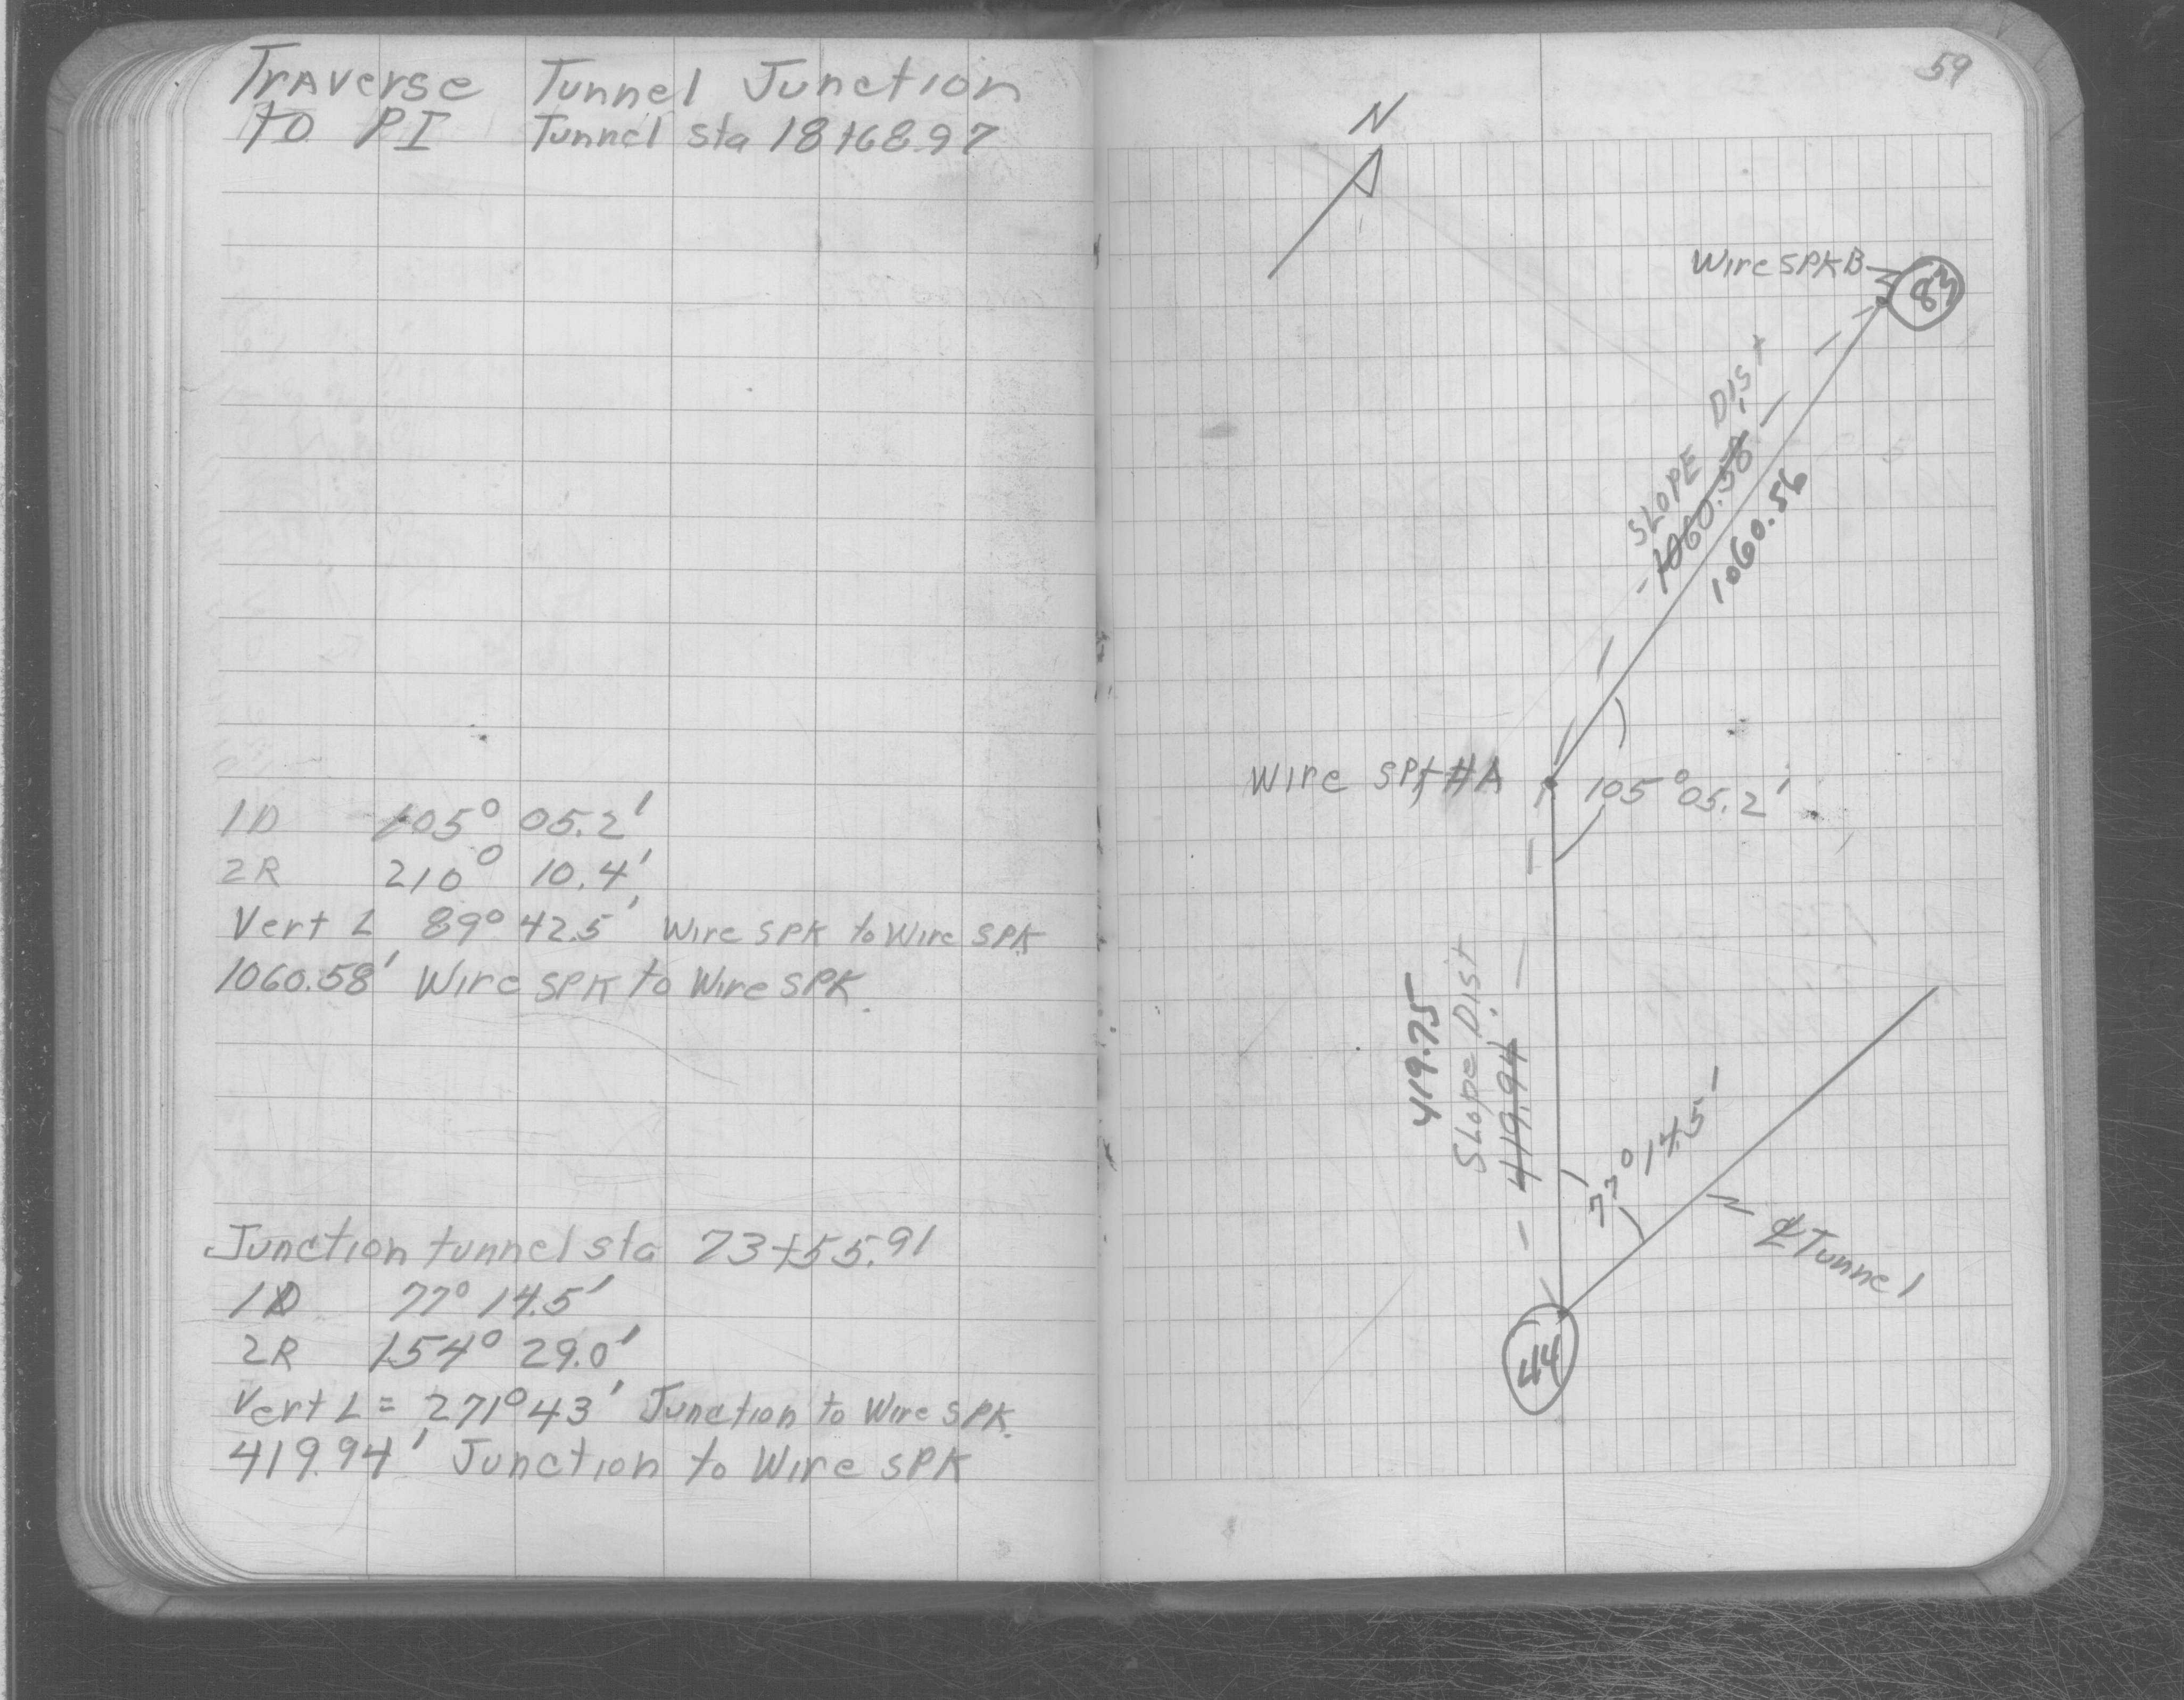 Traverse Tunnel Junction
to PI Tunnel Sta 18+68.97
1D 105° 05.2'
2R 210° 10.4'
Vert ∠ 89° 42.5' Wire SPK to Wire SPK
1060.58' Wire SPK to Wire SPK
Junction tunnel sta 73+55.91
1D 77° 14.5'
2R 154° 29.0'
Vert ∠ = 271° 43' Junction to Wire SPK
419.94' Junction to Wire SPK
59
N
Wire SPK B
83
SLOPE Dist
1060.58
1060.56
Wire SPK #A
105° 05.2'
419.75
Slope Dist
419.94
14.5
℄ Tunnel
44